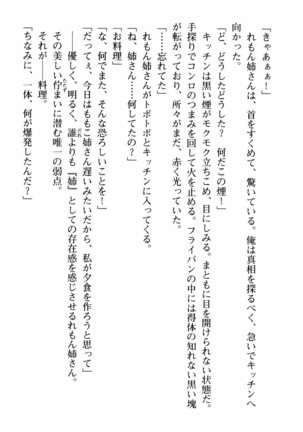 「きゃああぁ!」
れもん姉さんは、首をすくめて、驚いている。俺は真相を探るべく、急いでキッチンへ
向かった。
「ど、どうしたどうした? 何だこの煙!」
キッチンは黒い煙がモクモク立ちこめ、目にしみる。まともに目を開けられない状態だ。
手探りでコンロのつまみを回して火を止める。フライパンの中には得体の知れない黒い塊
が転がっており、所々がまだ、赤く光っていた。
「……忘れてた」
れもん姉さんがトボトボとキッチンに入ってくる。
「ね、姉さん……何してたの?」
「お料理」
「な、何でまた、そんな恐ろしいことを!」
「だってぇ、今日はももこ姉さん遅いみたいだから、私が夕食を作ろうと思って」
――優しく、明るく、誰よりも『姉』としての存在感を感じさせるれもん姉さん。
その美しい佇いに潜む唯一の弱点。
それが――料理。
「ちなみに、一体、何が爆発したんだ?」